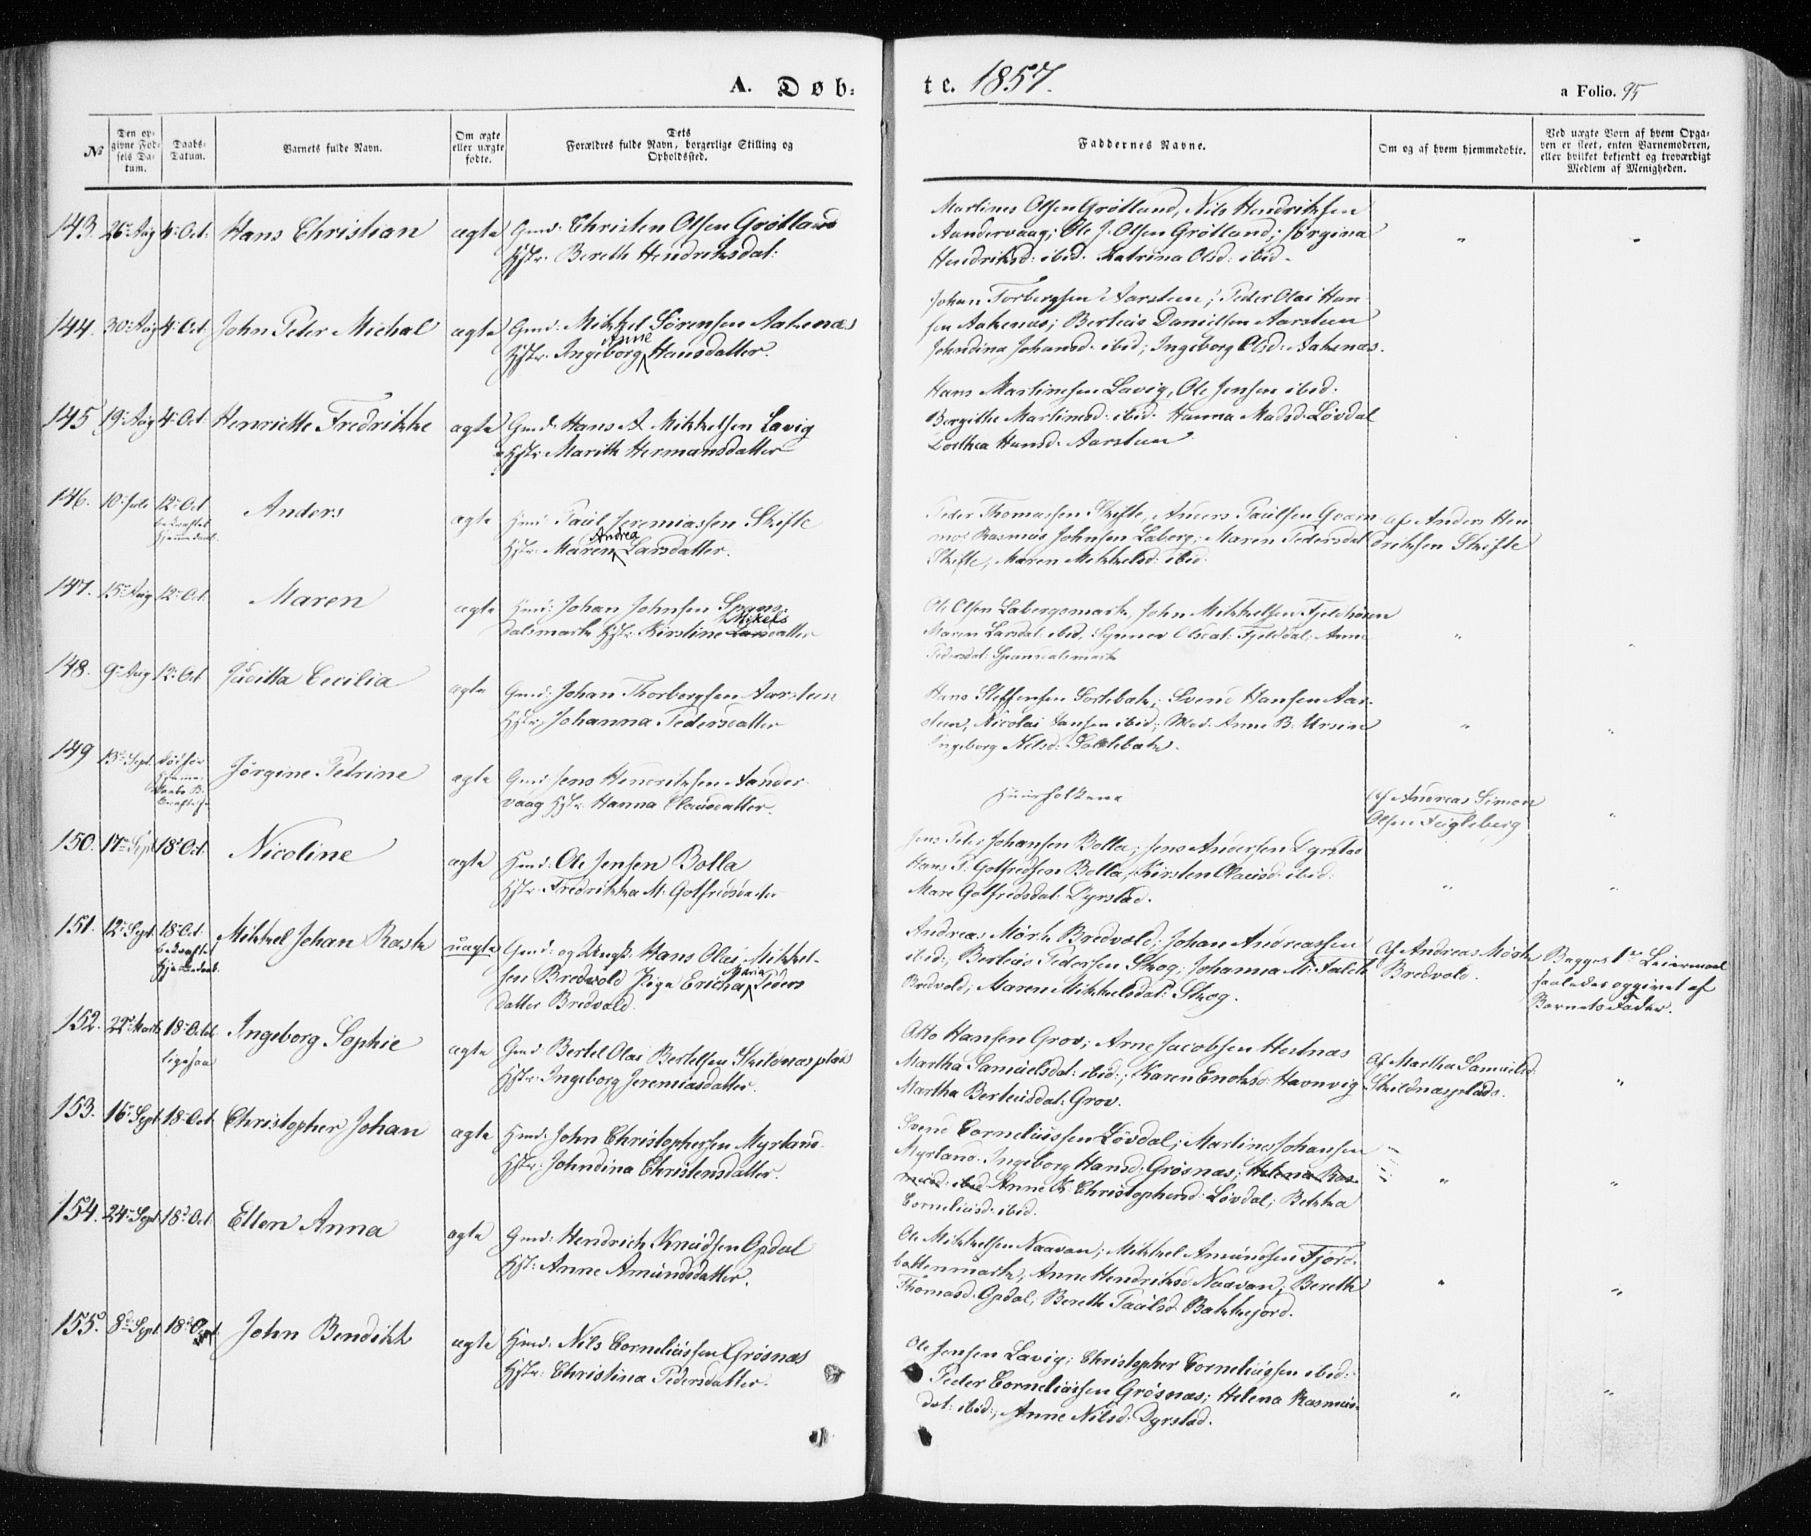 A. Døb=
te. 1857.
a Folio. 95
No
Den op-
givne Fød-
sels Da-
tum.
Daabs-
Datum.
Barnets fulde Navn.
Om ægte
eller uægte
fødte.
Dets
Forældres fulde Navn, borgerlige Stilling og
Opholdssted.
Faddernes Navne.
Om og af hvem hjemmedøbte.
Ved uægte Børn af hvem Opga-
ven er skeet, enten Barnemoderen,
eller hvilket bekjendt og troværdigt
Medlem af Menigheden.
143. 26 Aug 4 Oct. Hans Christian ægte Gmd: Christen Olsen Grøtland
Hstr: Bereth Hendriksdat:
Martines Olsen Grøtland, Nils Hendriksen
Aandervaag; Ole J. Olsen Grøtland; Jørgina
Hendriksd: ibid. Katrina Olsd: ibid.
144. 30 Aug 4 Oct. John Peter Michal ægte Gmd: Mikkel Sörensen Aakenæs
Anne
Hstr: Ingeborg Hansdatter.
Johan Torbergsen Aarsteen; Peder Olai Han-
sen Aakenæs; Berteus Danielsen Aarsteen
Johndina Johansd. ibid; Ingeborg Olsd. Aakenæs.
145 19 Aug 4 Oct Henriette Fredrikke ægte Gmd: Hans A Mikkelsen Lavig
Hstr: Marith Hermansdatter
Hans Martinesen Lavig, Ole Jensen ibid.
Bergithe Martinesd. ibid. Hanna Madsd. Løvdal
Dorthea Hansd. Aarsteen
146. 10 Juli 12 Oct Anders ægte Hmd: Paul Jeremiassen Skifte
Andrea
Hstr: Maren Larsdatter.
Peder Thomassen Skifte, Anders Paulsen
Rasmus Johnsen Laberg; Maren Pedersdat
Skifte, Maren Mikkelsd: ibid.
af Anders Hen-
driksen Skifte
147. 15 Aug 12 Oct. Maren ægte Hmd: Johan Johnsen Spans-
Mikels
dalsmark Hstr: Kirstine Larsdatter
Ole Olsen Labergsmark, John Mikkelsen
Maren Larsdat: ibid, Synnev Olsdat: Fjelddal, Anne
Pedersdat: Spansdalsmark
148. 9 Aug 12 Oct Juditta Cecilia ægte Gmd: Johan Thorbergsen Aarsteen
Hstr: Johanna Pedersdatter
Hans Steffensen Sørlebak; Svend Hansen Aar-
steen, Nicolai Hansen ibid; Mad: Anne B. Ursin
Ingeborg Nilsd: Sørlebak.
149 13 Sept. Jørgine Petrine ægte Gmd: Jens Hendriksen Aander-
vaag Hstr: Hanna Olausdatter.
Huusfolkene
af Andreas Simon
Olsen
150. 17 Sept 18 Oct. Nicoline ægte Hmd: Ole Jensen Bolla
Hstr: Fredrikka M. Gotfredsdatter
Jens Peter Johansen Bolla; Jens Andersen Dyrstad
Hans P. Gotfredsen Bolla, Kirsten Olausd: ibid:
Mare Gotfredsdat: Dyrstad.
151. 12 Sept. 18 Oct. Mikkel Johan Rask uægte Gmd: og Ungk: Hans Olai Mikkel-
Maria
sen Bredvold Pige Ericka Peders
datter Bredvold.
Andreas Mørk Bredvold; Johan Andreassen
ibid; Berteus Pedersen Skog; Johanna M. Falck
Bredvold; Maren Mikkelsdat: Skog.
af Andreas Mørk
Bredvold.
Begges 1ste Leiermaal
saaledes opgivet af
Barnets Fader.
152. 22 Marts 18 Octob Ingeborg Sophie ægte Gmd Bertel Olai Bertelsen Skildnæsplads
ligesaa
Hstr: Ingeborg Jeremiasdatter.
Otto Hansen Grov; Arne Jacobsen Hestnæs
Martha Samuelsdat: ibid:; Karen Enoksd: Havnvig
Martha Berteusdat: Grov.
af Martha Samuelsd.
Skildnæsplads.
153. 16 Sept 18 Oct Christopher Johan ægte Hmd: John Christophersen Myrland.
Hstr: Johndina Christensdatter.
Svend Corneliussen Løvdal; Martines Johansen
Myrland. Ingeborg Hansd. Grøsnæs; Helena Ras-
musd. ibid Anne K Christophersd: Løvdal; Bekka
Corneliusd: ibid.
154. 24 Sept. 18 Oct. Ellen Anna ægte Gmd: Hendrich Knudsen Opdal
Hst: Anne Amundsdatter.
Ole Mikkelsen Naavan; Mikkel Amundsen Fjord-
battenmark, Anne Hendriksd. Naavan; Bereth
Thomasd: Opdal; Bereth Paulsd. Bakkejord.
155. 8 Sept. 18 John Bendikt ægte Hmd: Nils Corneliussen Grøsnæs
Hstr: Christina Pedersdatter.
Ole Jensen Lavig; Christopher Corneliussen ibid:
Peder Corneliussen Grøsnæs; Helena Rasmus-
dat: ibid:, Anne Nilsd. Dyrstad.